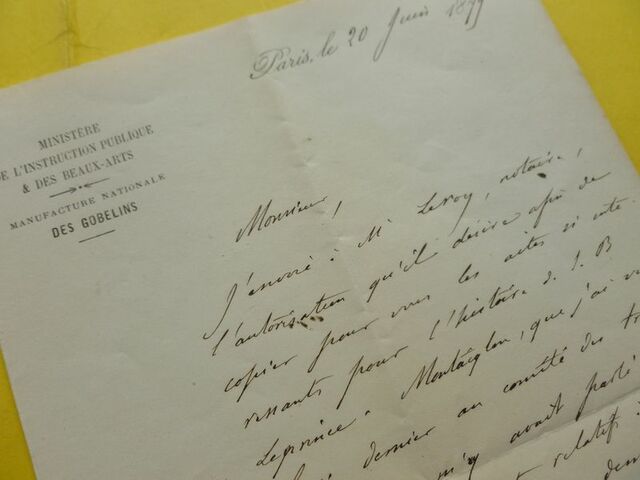 Paris, le 20 Juin 1877
MINISTÈRE
DE L'INSTRUCTION PUBLIQUE
& DES BEAUX-ARTS
MANUFACTURE NATIONALE
DES GOBELINS
Monsieur,
J'envoie à Mr Leroy, notaire,
l'autorisation qu'il désire afin de
copier pour vous les actes si inté
ressants pour l'histoire de J. B
Leprince. Montaiglon, que j'ai vu
dernier au comité des
m'y avait parlé
relatif